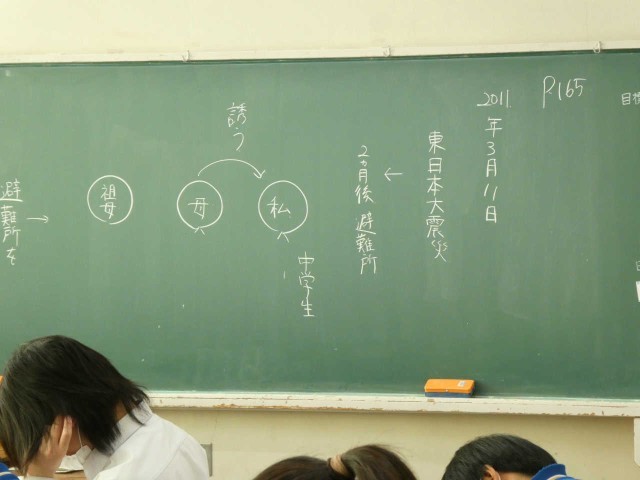 P.165
2011年3月11日
東日本大震災
←
2ヵ月後 避難所
中学生
私
誘う
母
祖母
→
避難所を